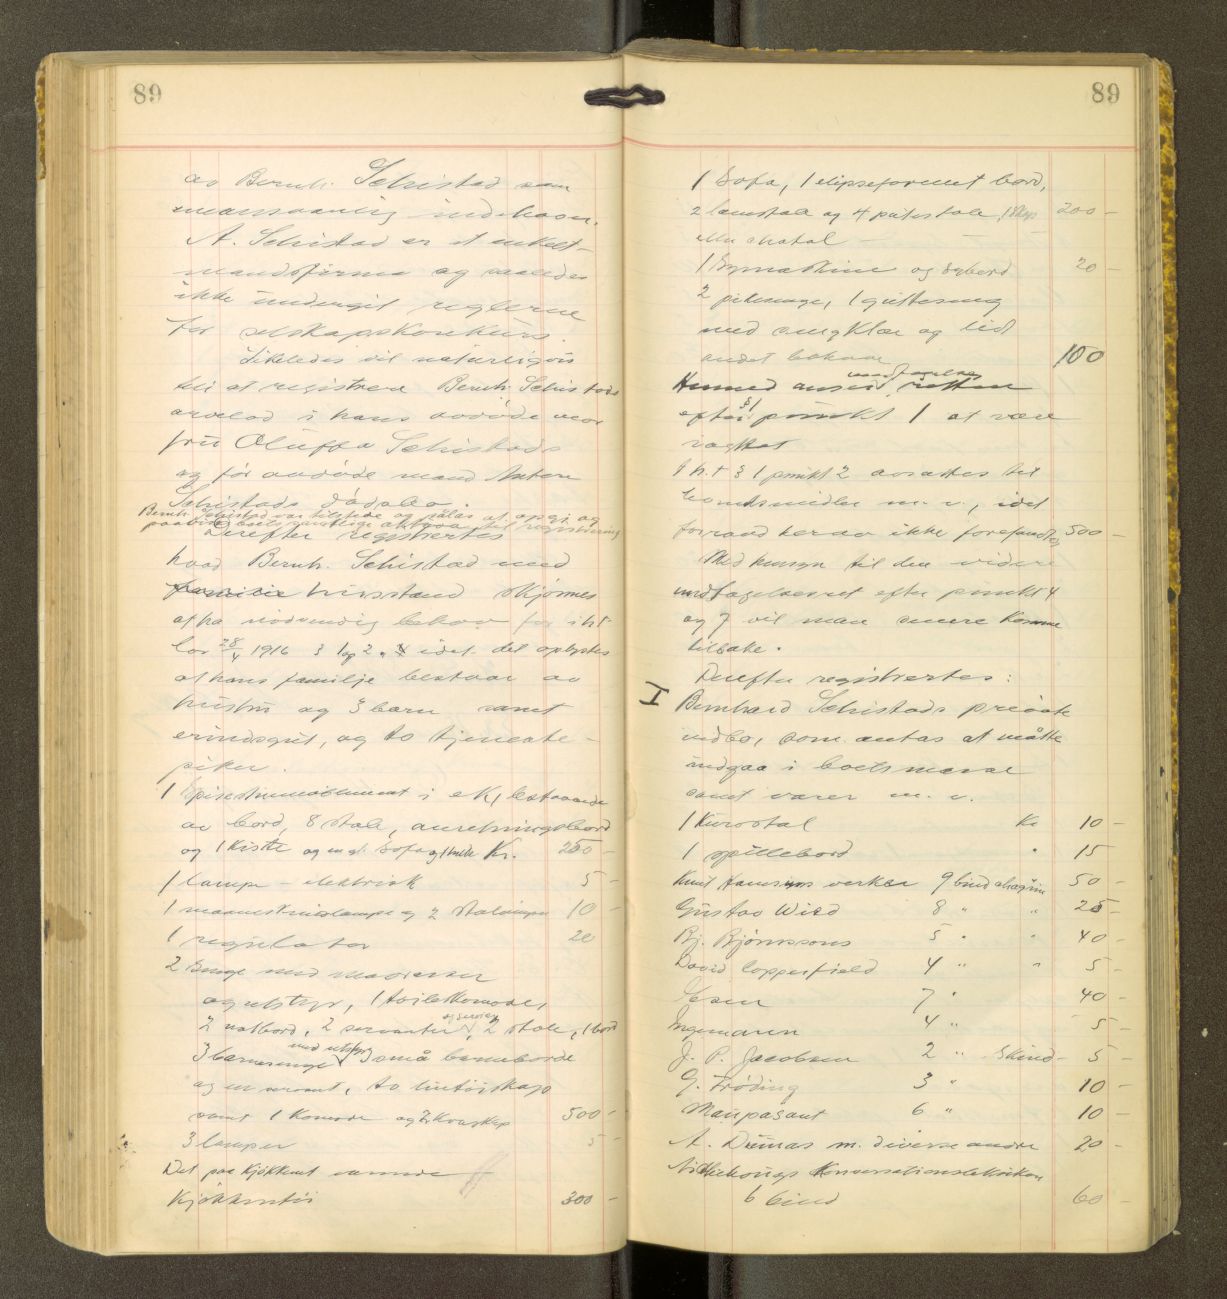 89
av Bernh. Schistad som
ansvarlig indehaver.
A. Schistad er et enkelt-
mandsfirma og saaledes
ikke undergit reglerne
for selskapskonkurs.
Likeledes vil naturligvis
bli at registrere Bernh. Schistads
arvelod i hans avdøde mor
fru Oluffa Schistads
og før avdøde mand Anton
Schistads dødsbo.
Bernh. Schistad var tilstede og at opgi og
paavise boets samtlige aktiver til registrering
Derefter registrertes
hvad Bernh. Schistad med
husstand skjønnes
at ha nødvendig behov for i h.t.
lov 28/4 1916 § 1 og 2. idet det oplystes
at hans familje bestaar av
hustru og 3 barn samt
og to tjeneste-
piker.
1 Spisestueameublement i ek, bestaaende
av bord, 8 stole, anretningsbord
og 1 kiste og en gl. sofa og Kr. 250 -
1 lampe - elektrisk 5 -
1 og 2 10 -
1 regulator 20
2 Senge med madrasser
og utstyr, 1 toiletkomode,
2 natbord, 2 servanter og servicer, 2 stole, 1 bord
3 barnesenge med utstyr, 3 små barneborde
og en servant, to lintøiskap
samt 1 komode og 2 500 -
3 lamper 5 -
Det paa kjøkkenet værende
Kjøkkentøi 300 -
89
1 Sofa, 1 elipseformet bord,
2 lænstole og 4 pølestole, 1 skap 200 -
eller chatol
1 Symaskine og sybord 20 -
2 pikesenge, 1 gutteseng
med sengklær og lidt
andet behov 100
Hermed ansees undtagelsesretten
efter § 1 punkt 1 at være
vogttet
I h.t. § 1 punkt 2 avsættes til
m. v., idet
forraad herav ikke forefandtes 500 -
Med hensyn til den videre
undtagelsesret efter punkt 4
og 7 vil man senere komme
tilbake.
Derefter registrertes:
I Bernhard Schistads private
indbo, som antas at måtte
indgaa i boets masse
samt varer m. v.
1 Kurvstol Kr 10 -
1 spillebord " 15
Knut Hamsuns verker 9 bind chagrin 50 -
Gustav Wied 8 " " 25 -
Bj. Bjørnssons 5 " " 40 -
David Copperfield 4 " " 5 -
Ibsen 7 " 40 -
Ingemann 4 " 5 -
J. P. Jacobsen 2 " Skind - 5 -
G. Frøding 3 " 10 -
Maupasant 6 " 10 -
A. Dumas m. diverse andre 20 -
Konversationsleksikon
6 bind 60 -